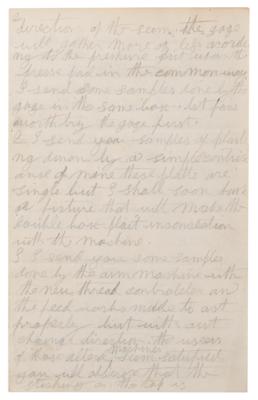 direction of the seam. the gage
will gather more or less accord
ing to the preshure put upon the
presser pad in the common way
I send some samples done by the
gage in the same box. but fare
worthy the gage first.
2 I send you samples of plait
ing done by a simple contriv
ance of mine these plaits are
single but I shall soon have
a fixture that will make the
double box plait in connection
with the machine.
3 I send you some samples
done by the arm machine with
the new thread controler an
the feed works made to act
properly but with out
change direction. the users
of those altered machines seem satisfied
you will observe that the
stitching on the top is